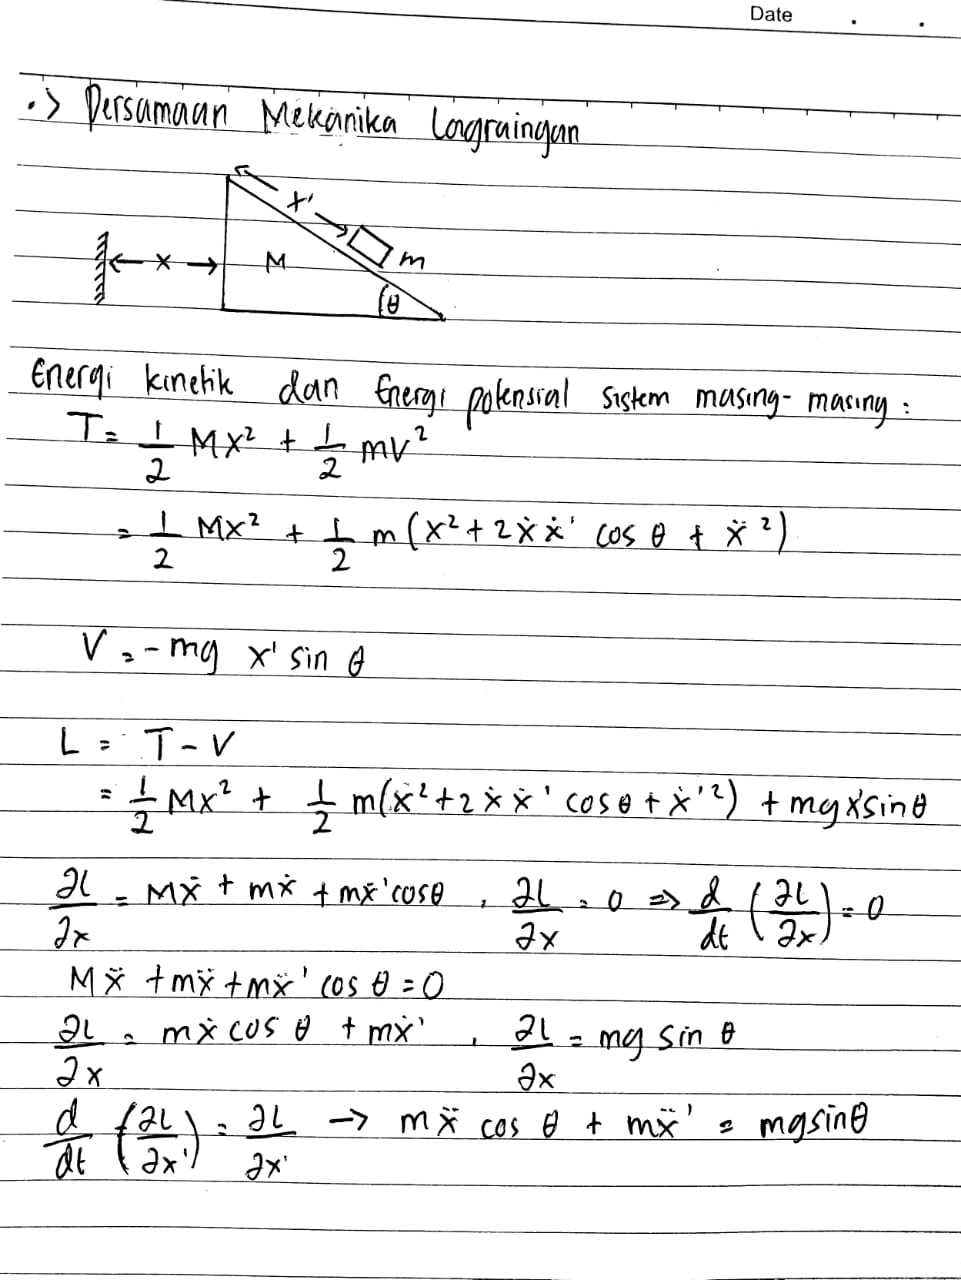 Date . .
•> Persamaan Mekanika Lagraingan
x'
m
← x →
M
θ
Energi kinetik dan Energi potensial sistem masing-masing :
T = 1/2 Mx² + 1/2 mv²
= 1/2 Mx² + 1/2 m(x² + 2ẋẋ' cos θ + ẍ²)
V = -mg x' sin θ
L = T - V
= 1/2 Mx² + 1/2 m(ẋ² + 2ẋẋ' cos θ + ẋ'²) + mgx'sin θ
∂L/∂x = Mẍ + mẋ + mẍ'cosθ , ∂L/∂x = 0 => d/dt (∂L/∂x) = 0
Mẍ + mẍ + mẍ' cos θ = 0
∂L/∂x = mẋ cos θ + mẋ' , ∂L/∂x = mg sin θ
d/dt (∂L/∂x') = ∂L/∂x' → mẍ cos θ + mẍ' = mg sinθ